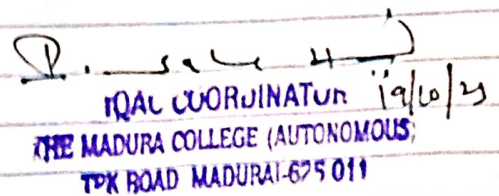 IQAC COORDINATOR 19/10/23
THE MADURA COLLEGE (AUTONOMOUS)
TPK ROAD MADURAI-625 011